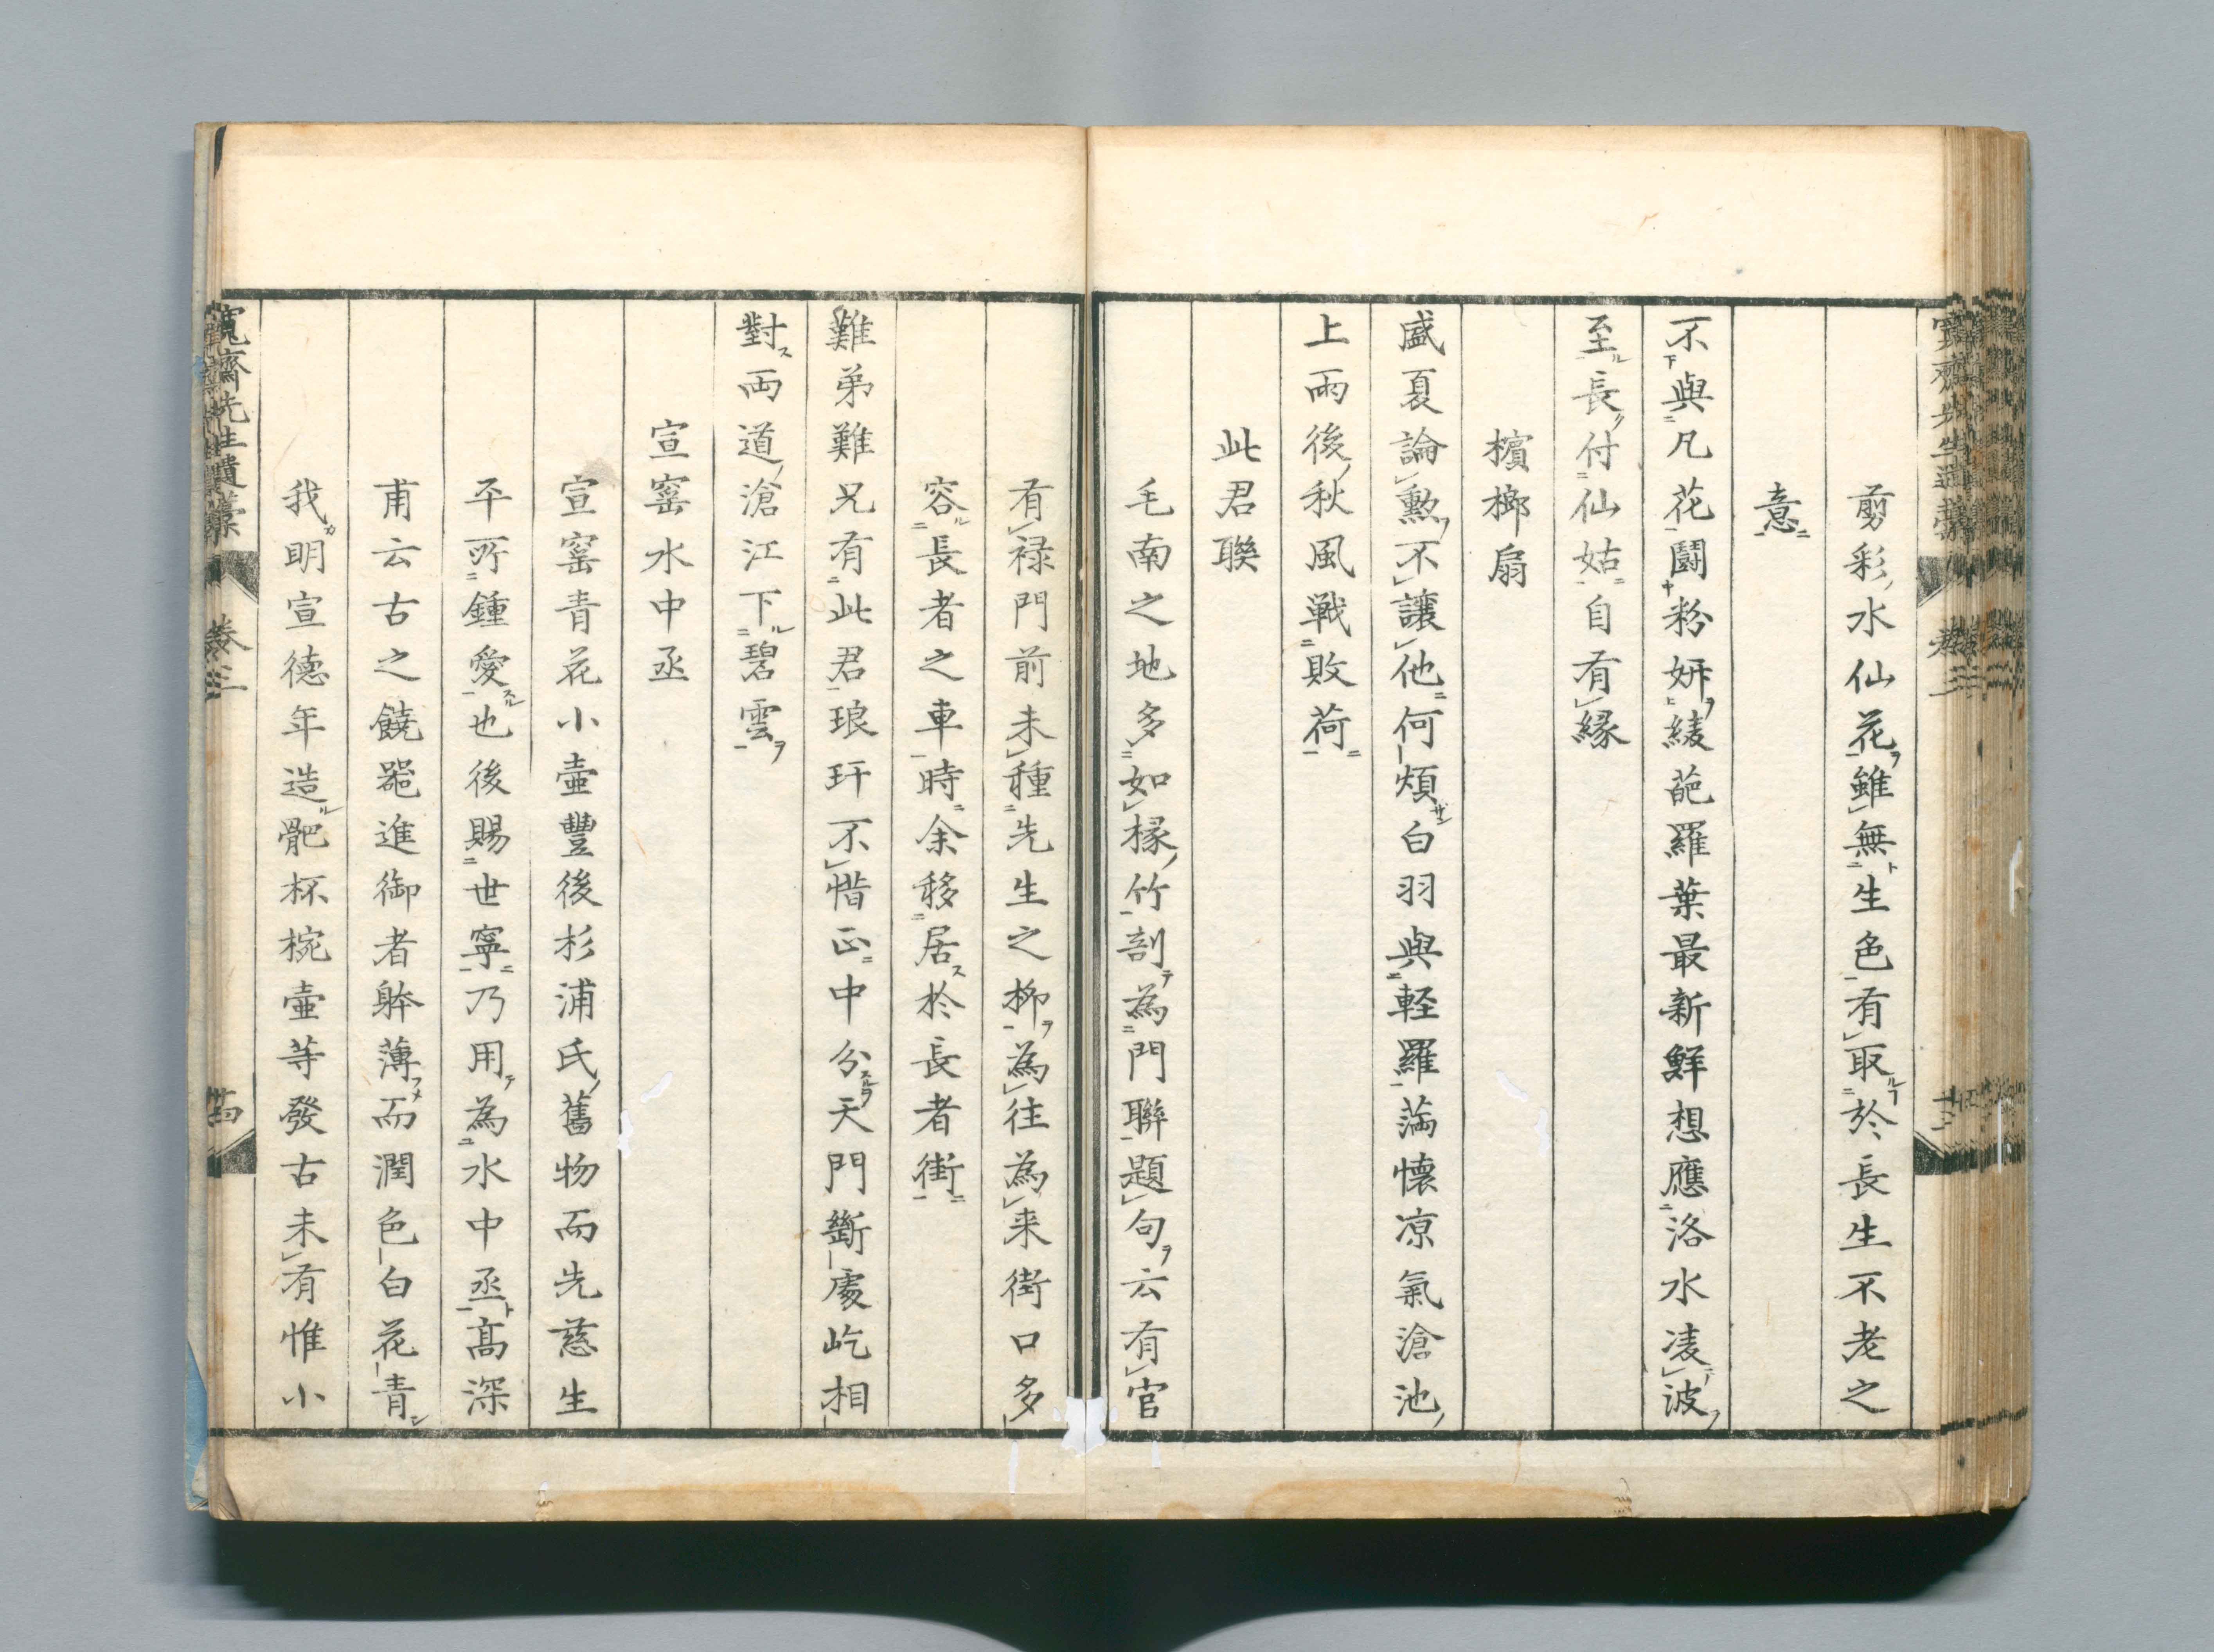 剪彩水仙花雖無生色有取於長生不老之
意
不與凡花鬪粉妍綾葩羅葉最新鮮想應洛水凌波
至長付仙姑自有縁
檳榔扇
盛夏論勲不讓他何煩白羽與軽羅満懐凉氣滄池
上雨後秋風戦敗荷
此君聯
毛南之地多如椽竹剖為門聯題句云有官
有禄門前未種先生之柳為往為来街口多
容長者之車時余移居於長者街
難弟難兄有此君琅玕不惜正中分天門斷處屹相
對両道滄江下碧雲
宣窑水中丞
宣窑青花小壷豊後杉浦氏舊物而先慈生
平所鍾愛也後賜世寧乃用為水中丞高深
甫云古之饒器進御者躰薄而潤色白花青
我明宣德年造靶杯椀壷等發古未有惟小
寛齋先生遺藁 巻三 十四